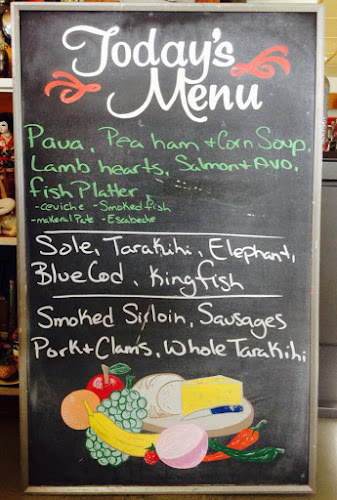 Today's
Menu
Paua, Pea ham + Corn Soup,
Lamb hearts, Salmon + Avo,
fish Platter
- ceviche - Smoked fish
- makeral Pate - Escabeche
Sole, Tarakihi, Elephant,
Blue Cod, Kingfish
Smoked Sirloin, Sausages
Pork + Clams, Whole Tarakihi